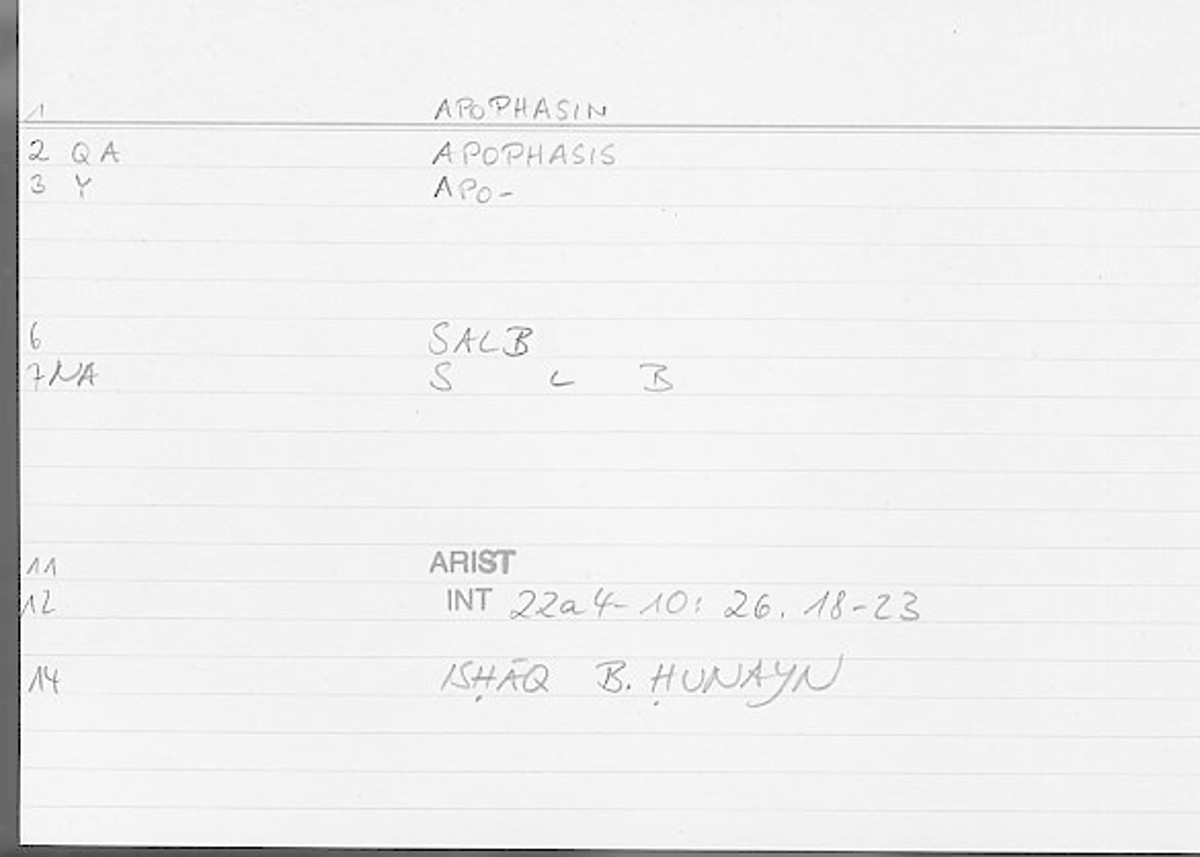 1 APOPHASIN
2 QA APOPHASIS
3 Y APO-
6 SALB
7NA S L B
11 ARIST
12 INT 22a4-10: 26.18-23
14 ISḤĀQ B. ḤUNAYN